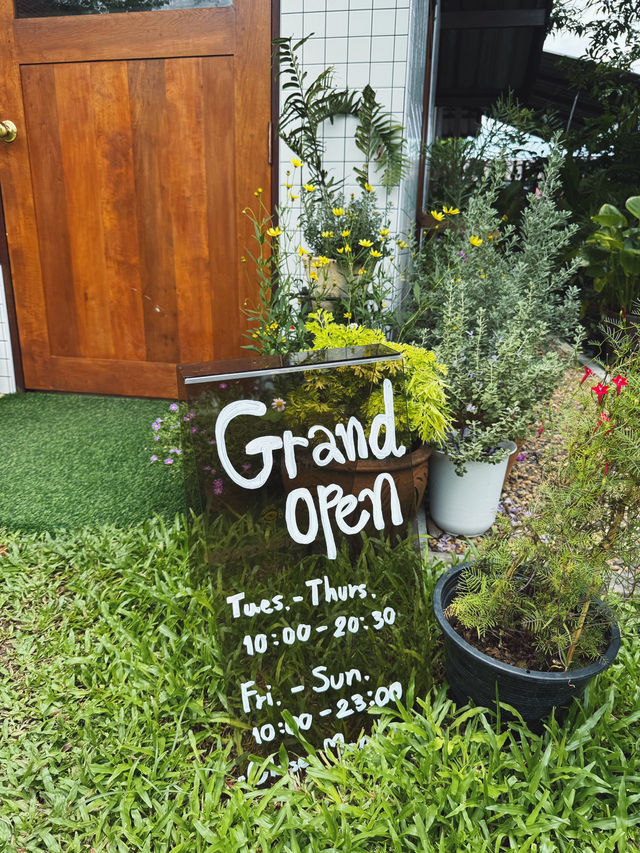 Grand
open
Tues. - Thurs.
10:00 - 20:30
Fri. - Sun.
10:00 - 23:00